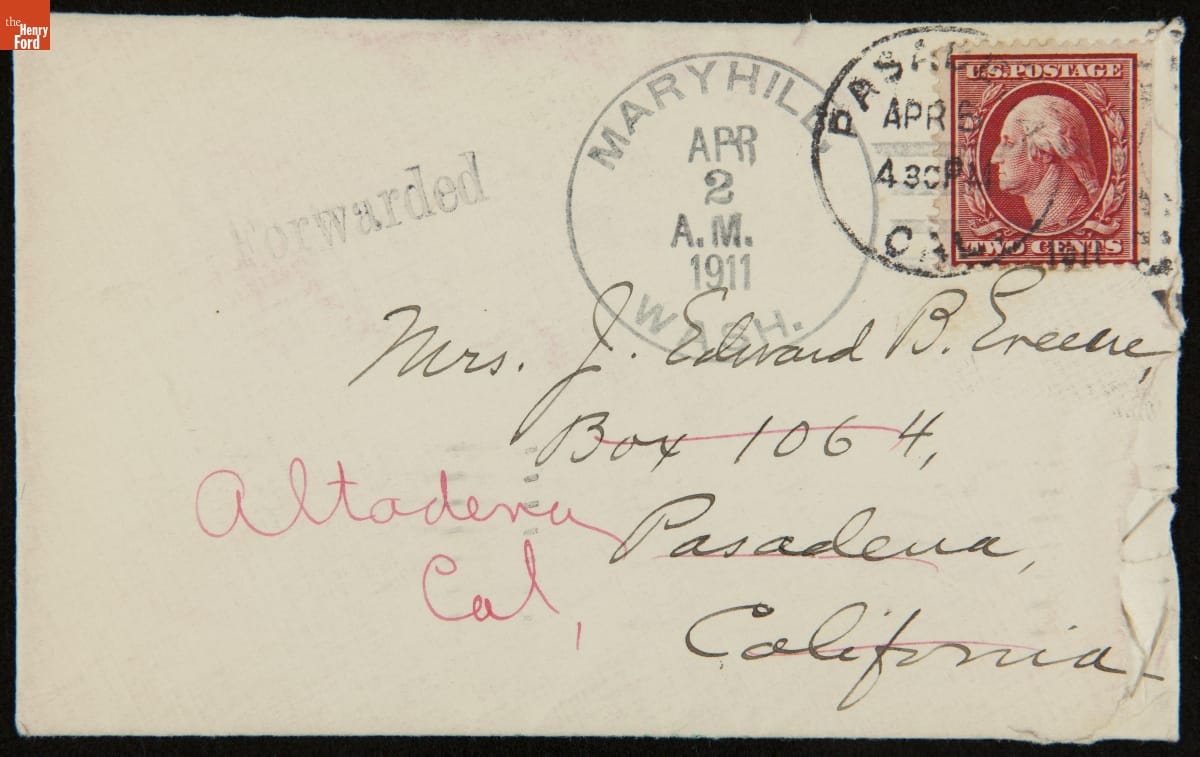 the
Henry
Ford
Forwarded
MARYHILL
APR
2
A.M.
1911
WASH.
PASADENA
APR 5
4 30 PM
CAL.
1911
U.S. POSTAGE
TWO CENTS
Mrs. J. Edward B. Greene,
Box 1064,
Pasadena,
California
Altadena
Cal,